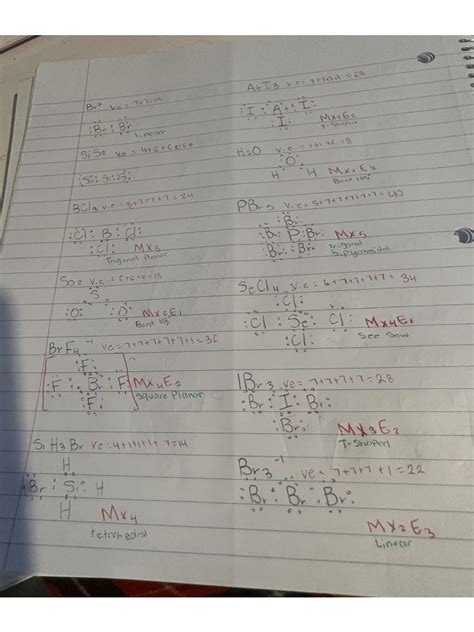 Br² ve = 7+7=14
:Br:Br:
Linear
SiS₂ ve = 4+6+6=16
:S::Si::S:
BCl₃ v.e = 3+7+7+7=24
:Cl: B :Cl:
:Cl: MX3
Trigonal Planar
SO₂ v.e = 6+6+6=18
S
:O: :O: MX2E1
Bent
BrF4 ⁻¹ ve = 7+7+7+7+1=36
:F:
:F: Br :F: MX4E2
:F: Square Planar
SiH3Br ve = 4+1+1+1+7=14
H
:Br: Si: H
H
MX4
tetrahedral
AtI3 v.e =
:I: At :I:
:I: MX3E2
T-Shaped
H=O v.e = 1+1+6=8
:O:
H H MX2E2
Bent
PBr5 v.e = 5+7+7+7+7+7= 40
:Br:
:Br: P :Br: MX5
:Br: :Br: Trigonal
bipyramidal
SeCl4 v.e = 6+7+7+7+7= 34
:Cl:
:Cl : Se : Cl: MX4E1
:Cl: See Saw
IBr3 ve = 7+7+7+7=28
:Br: I :Br:
:Br: MX3E2
T-Shaped
Br3 ⁻¹ ve = 7+7+7+1=22
:Br: Br :Br:
MX2E3
Linear